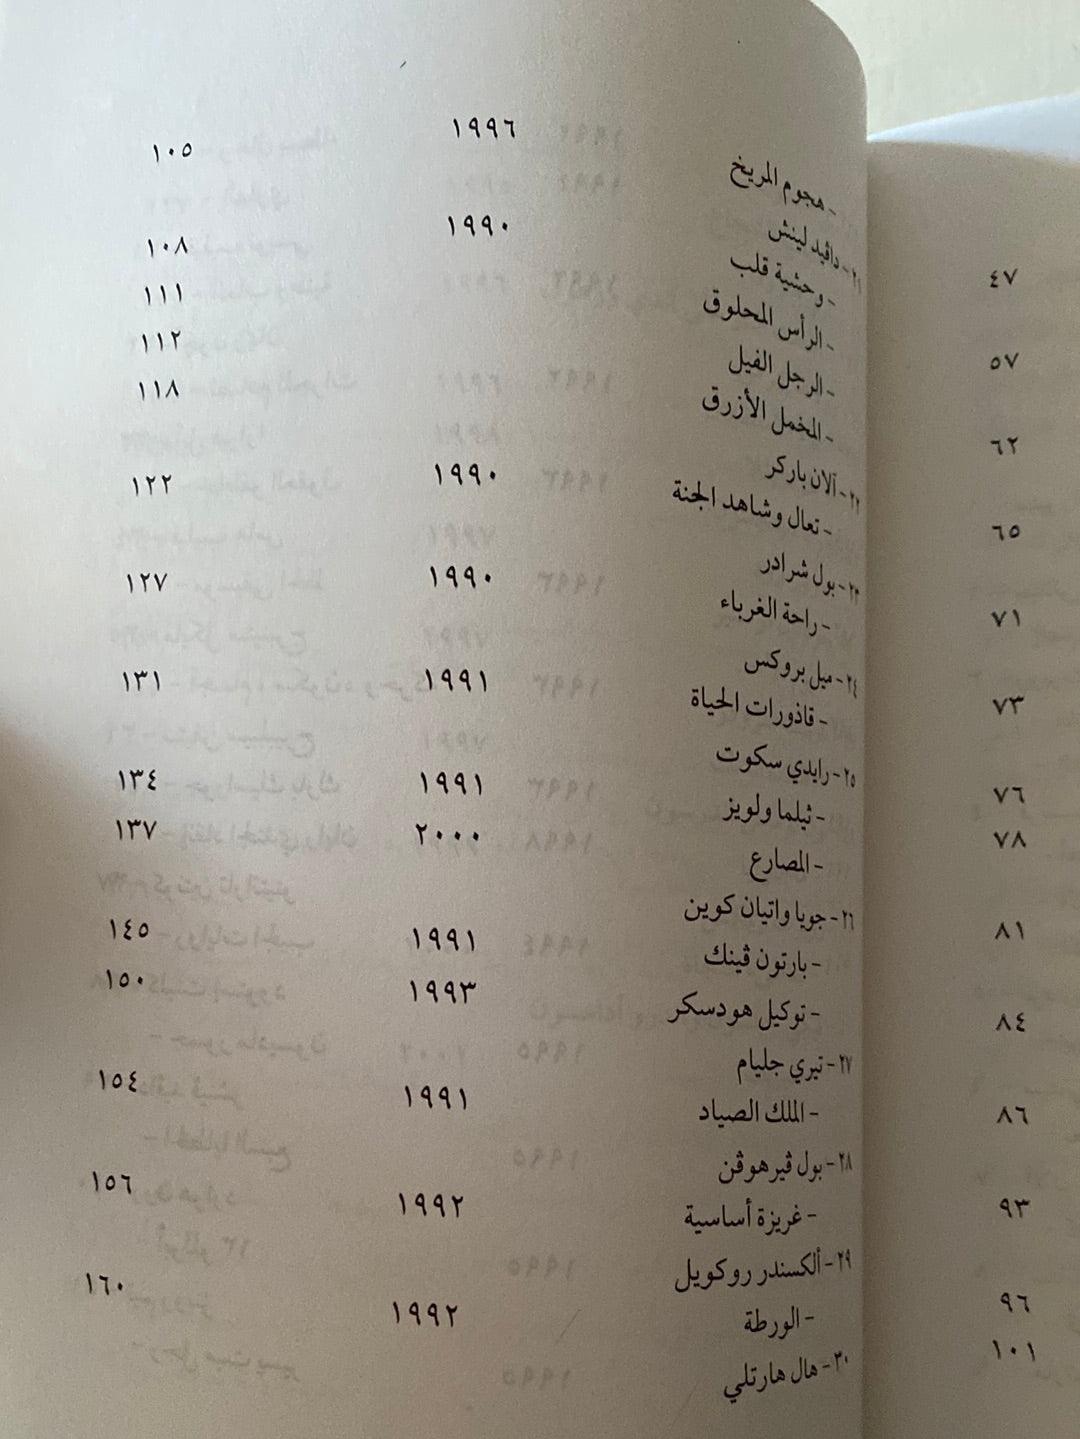 - هجوم المريخ ١٩٩٦ ١٠٥
٢١- داڤيد لينش
- وحشية قلب ١٩٩٠ ١٠٨
- الرأس المحلوق ١١١
- الرجل الفيل ١١٢
- المخمل الأزرق ١١٨
٢٢- آلان باركر
- تعال وشاهد الجنة ١٩٩٠ ١٢٢
٢٣- بول شرادر
- راحة الغرباء ١٩٩٠ ١٢٧
٢٤- ميل بروكس
- قاذورات الحياة ١٩٩١ ١٣١
٢٥- رايدي سكوت
- ثيلما ولويز ١٩٩١ ١٣٤
- المصارع ٢٠٠٠ ١٣٧
٢٦- جويا واتيان كوين
- بارتون ڤينك ١٩٩١ ١٤٥
- توكيل هودسكر ١٩٩٣ ١٥٠
٢٧- تيري جليام
- الملك الصياد ١٩٩١ ١٥٤
٢٨- بول ڤيرهوڤن
- غريزة أساسية ١٩٩٢ ١٥٦
٢٩- ألكسندر روكويل
- الورطة ١٩٩٢ ١٦٠
٣٠- هال هارتلي
٤٧
٥٧
٦٢
٦٥
٧١
٧٣
٧٦
٧٨
٨١
٨٤
٨٦
٩٣
٩٦
١٠١